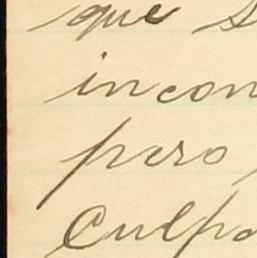 que s
incon
pero,
Culpa